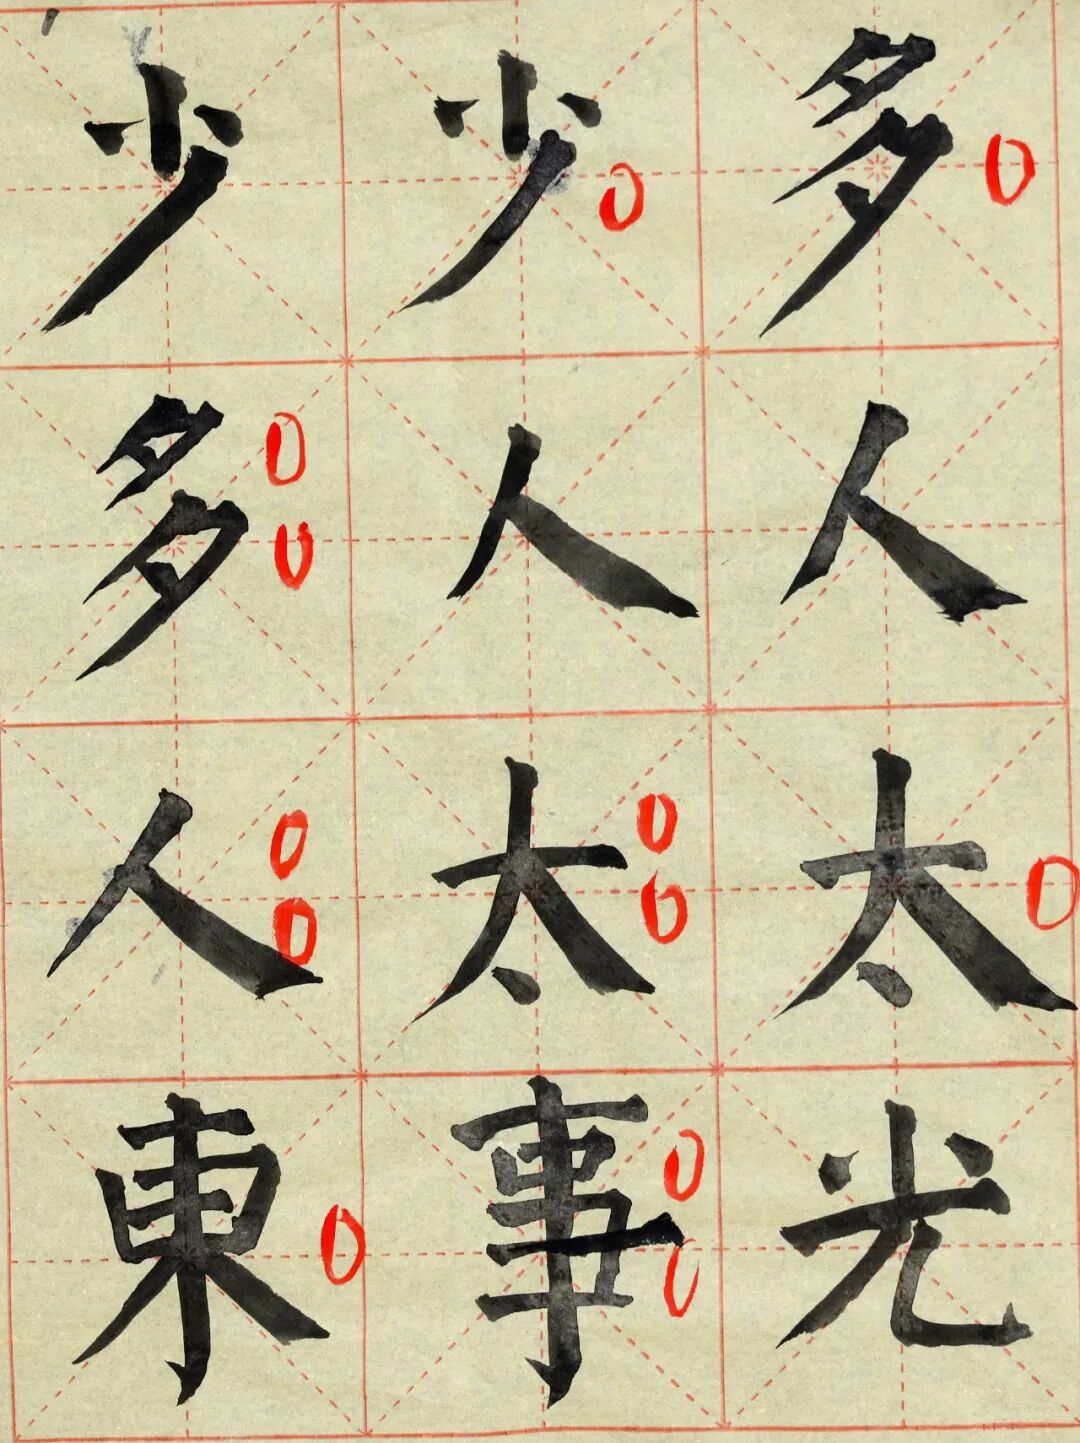 少少多
多人人
人太太
東事光